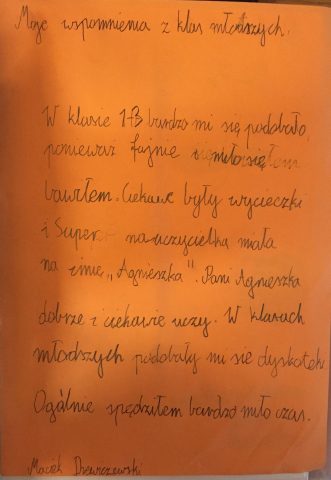 Moje wspomnienia z klas młodszych.
W klasie 1-3 bardzo mi się podobało,
ponieważ fajnie i miło się
bawiłem. Ciekawe były wycieczki
i Super nauczycielka miała
na imię „Agnieszka". Pani Agnieszka
dobrze i ciekawie uczy. W klasach
młodszych podobały mi się dyskotek
Ogólnie spędziłem bardzo miło czas.
Maciek